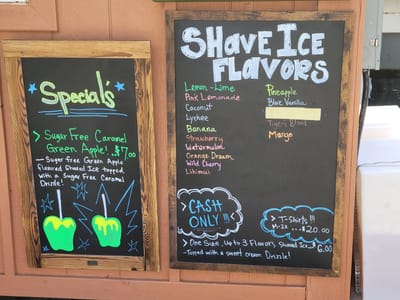 Special's
> Sugar Free Caramel
Green Apple! ..$7.00
— Sugar free Green Apple
flavored Shaved Ice topped
with a Sugar Free Caramel
Drizzle!
SHave Ice
FLavors
Lemon-Lime
Pink Lemonade
Coconut
Lychee
Banana
Strawberry
Watermelon
Orange Dream
Wild Cherry
Likimui
Pineapple
Blue Vanilla
Tigers Blood
Mango
> CASH
ONLY!!!
> T-Shirts!!!
M-2X ...$20.00
> One Size, Up to 3 Flavors Shaved Ice ...6.00
-Topped with a sweet cream Drizzle!